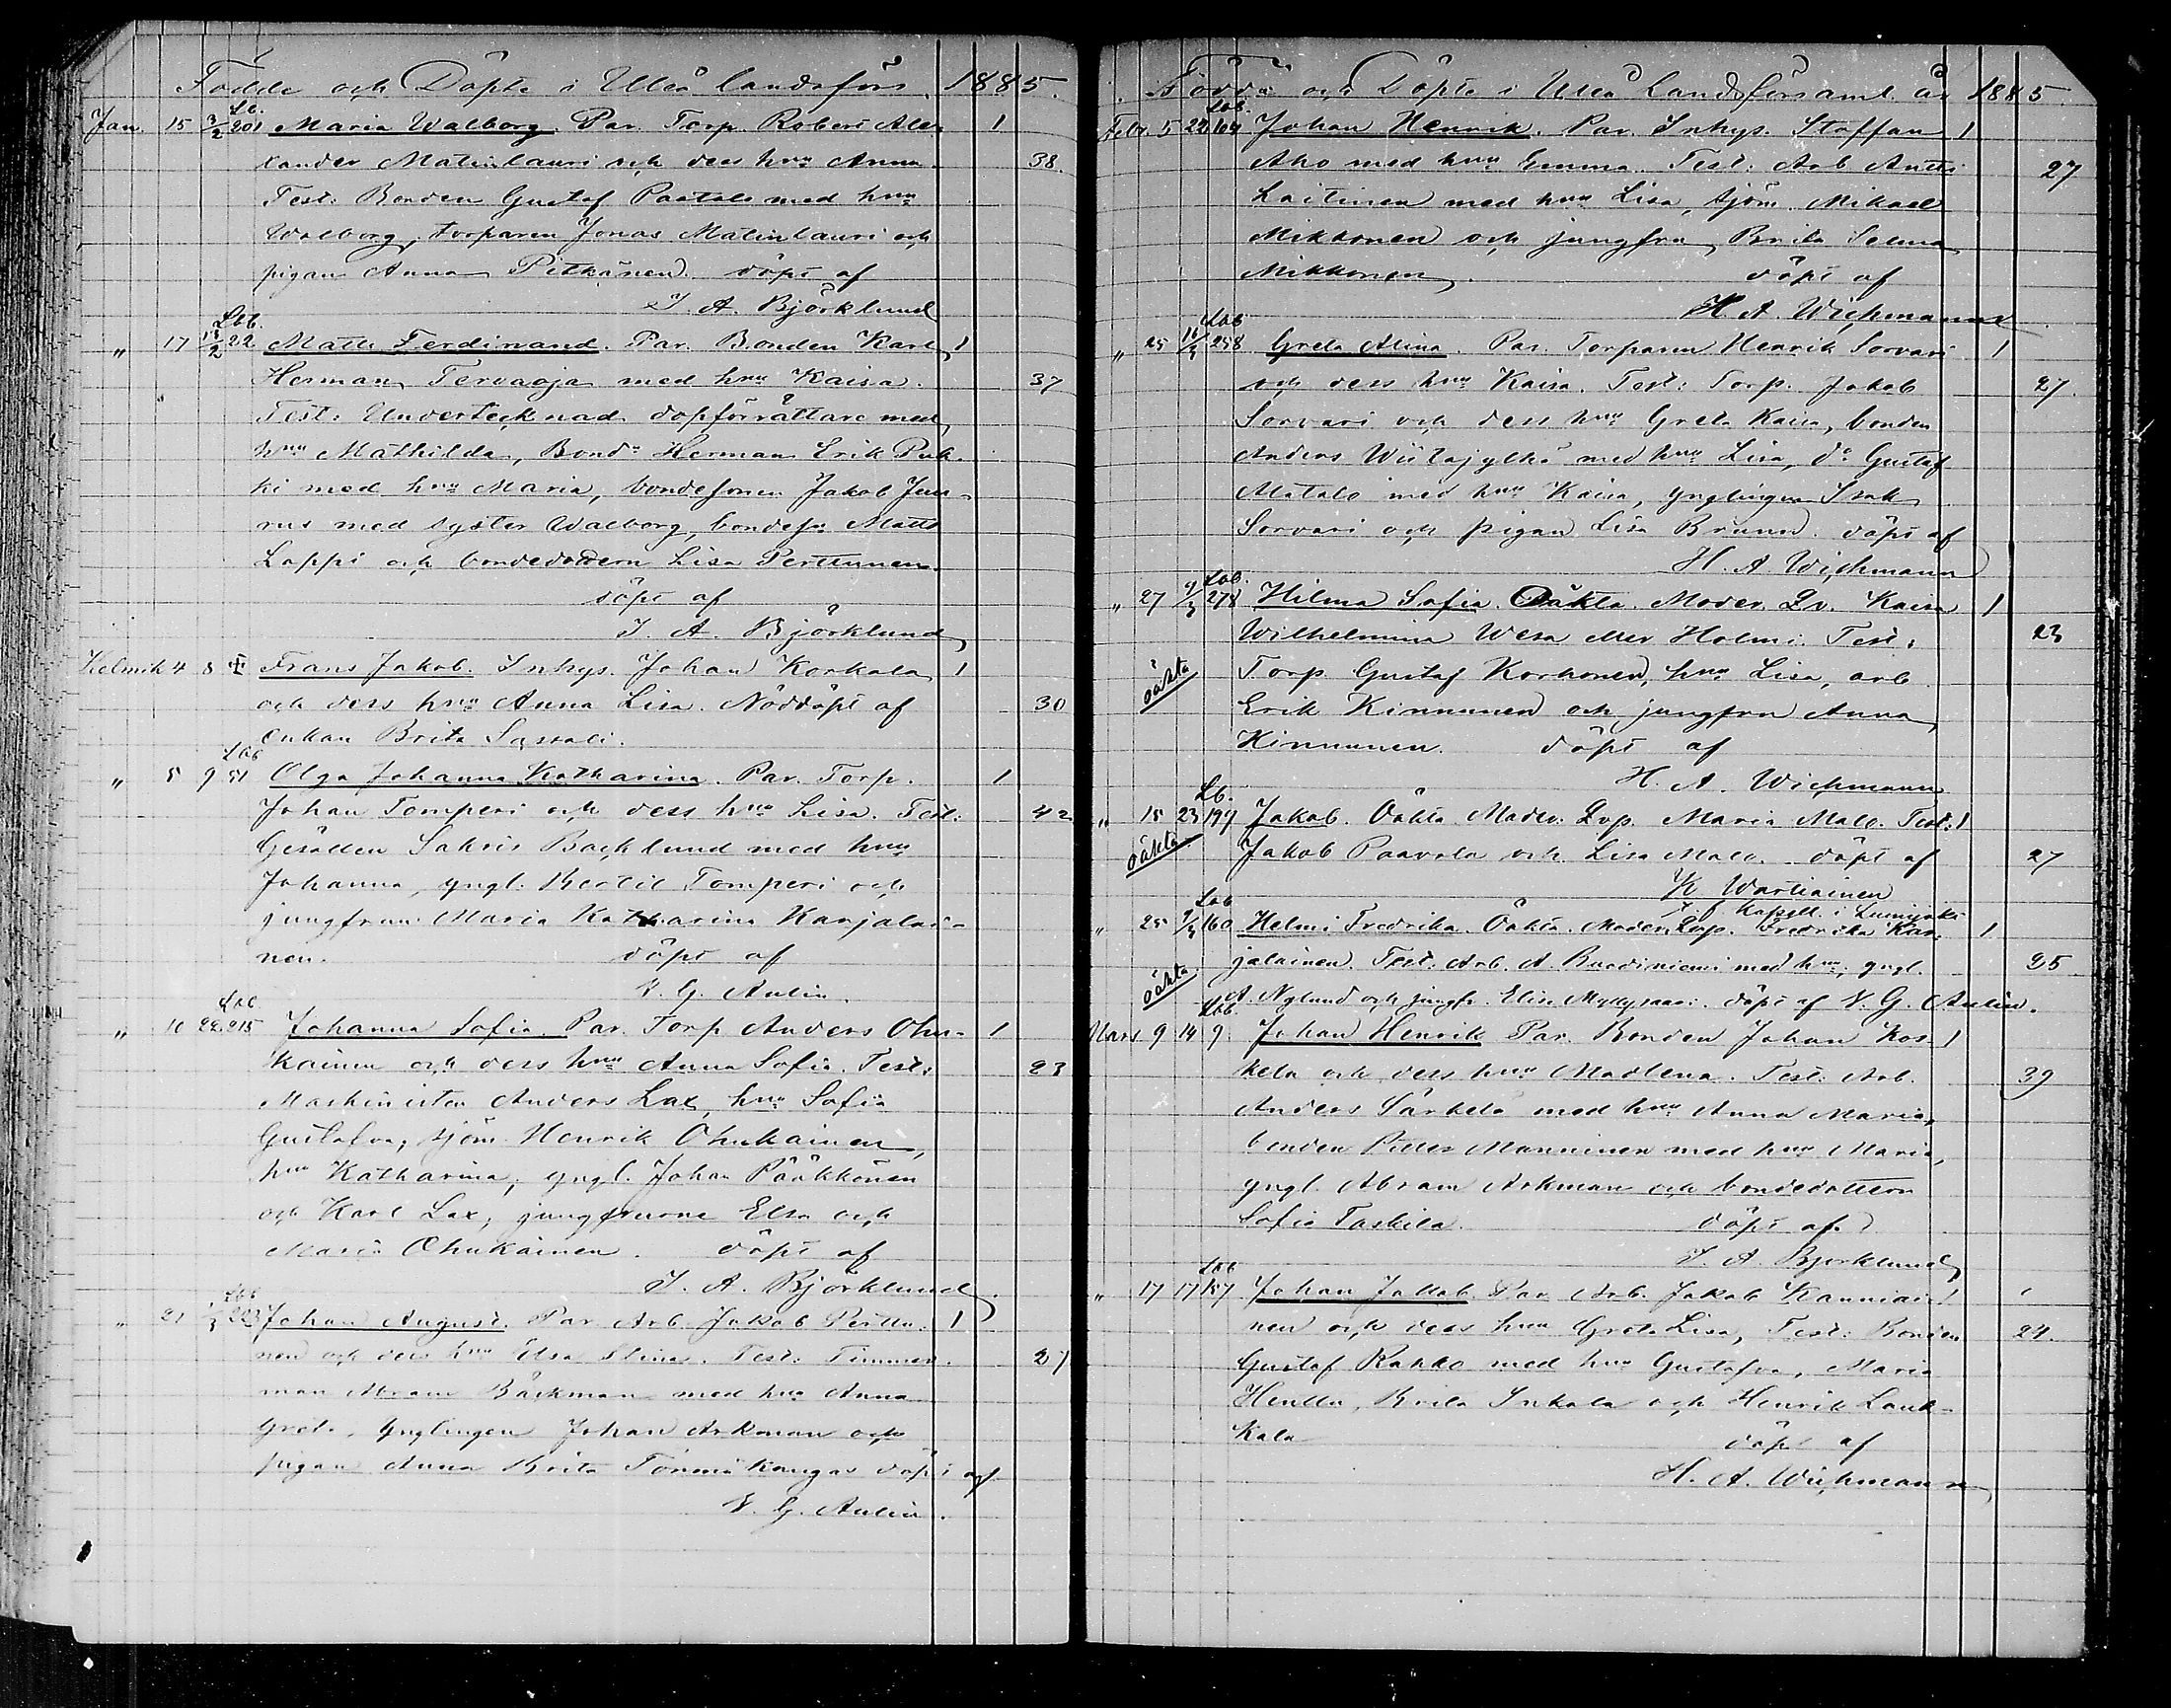 Födde och Döpte i Uleå landsförs. 1885.
Lb.
Jan. 15 3/2 201 Maria Walborg. Par. Torp. Robert Alex- 1
xander Matinlauri och dess hru Anna. 38.
Test. Bonden Gustaf Paatalo med hru
Walborg, torparen Jonas Matinlauri och
pigan Anna Pitkänen. döpt af
J. A. Björklund
Lbb.
" 17 13/2 22 Matts Ferdinand. Par. Bonden Karl 1
Herman Tervaoja med hru Kaisa. 37
Test: Undertecknad dopförrättare med
hru Mathilda, Bond. Herman Erik Puk-
ki med hru Maria, bondesonen Jakob Jun-
rus med syster Walborg, bondes. Matts
Lappi och bondedottern Lisa Perttunen.
döpt af
J. A. Björklund
Helmik 4 8 Frans Jakob. Inhys. Johan Korkala 1
och dess hru Anna Lisa. Nöddöpt af 30
enkan Brita Sassali.
Lbb
" 5 9 51 Olga Johanna Katharina. Par. Torp. 1
Johan Tomperi och dess hru Lisa. Test: 42
Gesällen Sakris Backlund med hru
Johanna, yngl. Bertil Tomperi och
jungfrun Maria Katharina Karjalai-
nen. döpt af
V. G. Aulin.
Lbb
" 10 22 215 Johanna Sofia. Par. Torp Anders Ohu- 1
kainen och dess hru Anna Sofia. Test: 23
Maskinisten Anders Lax, hru Sofia
Gustafva, sjöm. Henrik Ohukainen,
hru Katharina, yngl. Johan Pääkkönen
och Karl Lax, jungfruerne Elsa och
Maria Ohukainen. döpt af
J. A. Björklund
Lbb
" 21 1/3 223 Johan August. Par. Arb. Jakob Perttu- 1
nen och dess hru Elsa Stina. Test: Timmer- 27
man Abram Bäckman med hru Anna
Greta, ynglingen Johan Arkman och
pigan Anna Brita Törmäkangas döpt af
V. G. Aulin.
Födde och Döpte i Uleå Landsförsaml. år 1885.
Lbb
Febr. 5 22 164 Johan Henrik. Par. Inhys. Staffan 1
Aho med hru Emma. Test: Arb Antti 27
Laitinen med hru Lisa, sjöm. Mikael
Mikkonen och jungfru Brita Selma
Mikkonen. döpt af
H. A. Wichmann
Lbb
" 25 16/3 258 Greta Alina. Par. Torparen Henrik Sorvari 1
och dess hru Kaisa. Test: Torp. Jakob 27.
Sorvari och dess hru Greta Kaisa, bonden
Anders Wiitajylhä med hru Lisa, do Gustaf
Alatalo med hru Kaisa, ynglingen Isak
Sorvari och pigan Lisa Brunn. döpt af
H. A. Wichmann
Lbb.
" 27 9/3 278 Hilma Sofia. Oäkta. Moder Qv. Kaisa 1
Wilhelmina Wesa eller Holmi. Test: 23
oäkta Torp. Gustaf Korhonen, hru Lisa, arb
Erik Kinnunen och jungfru Anna
Kinnunen. döpt af
H. A. Wichmann
Lb.
" 15 23 197 Jakob. Oäkta. Moder Lsp. Maria Malo. Test: 1
oäkta Jakob Paavola och Lisa Malo. döpt af 27
K Wartiainen
t. f. Kapell. i Lumijoki
Lbb
" 25 9/3 160 Helmi Fredrika. Oäkta. Moder Lsp. Fredrika Kar- 1
jalainen. Test: Arb. A. Ruodiniemi med hru, yngl. 25
oäkta A. Nylund och jungfr. Elin Myllysaari. döpt af V. G. Aulin.
Lbb.
Mars 9 14 9. Johan Henrik Par. Bonden Johan Kos- 1
kela och dess hru Madlena. Test: Arb. 39
Anders Särkelä med hru Anna Maria,
bonden Petter Manninen med hru Maria,
yngl. Abram Arkman och bondedottern
Sofia Taskila. döpt af
J. A. Björklund
Lbb
" 17 17 157 Johan Jakob Par Arb. Jakob Kanniai- 1
nen och dess hru Greta Lisa, Test: Bonden 24.
Gustaf Kakko med hru Gustafva, Maria
Henttu, Brita Inkala och Henrik Lauk-
kala döpt af
H. A. Wichmann